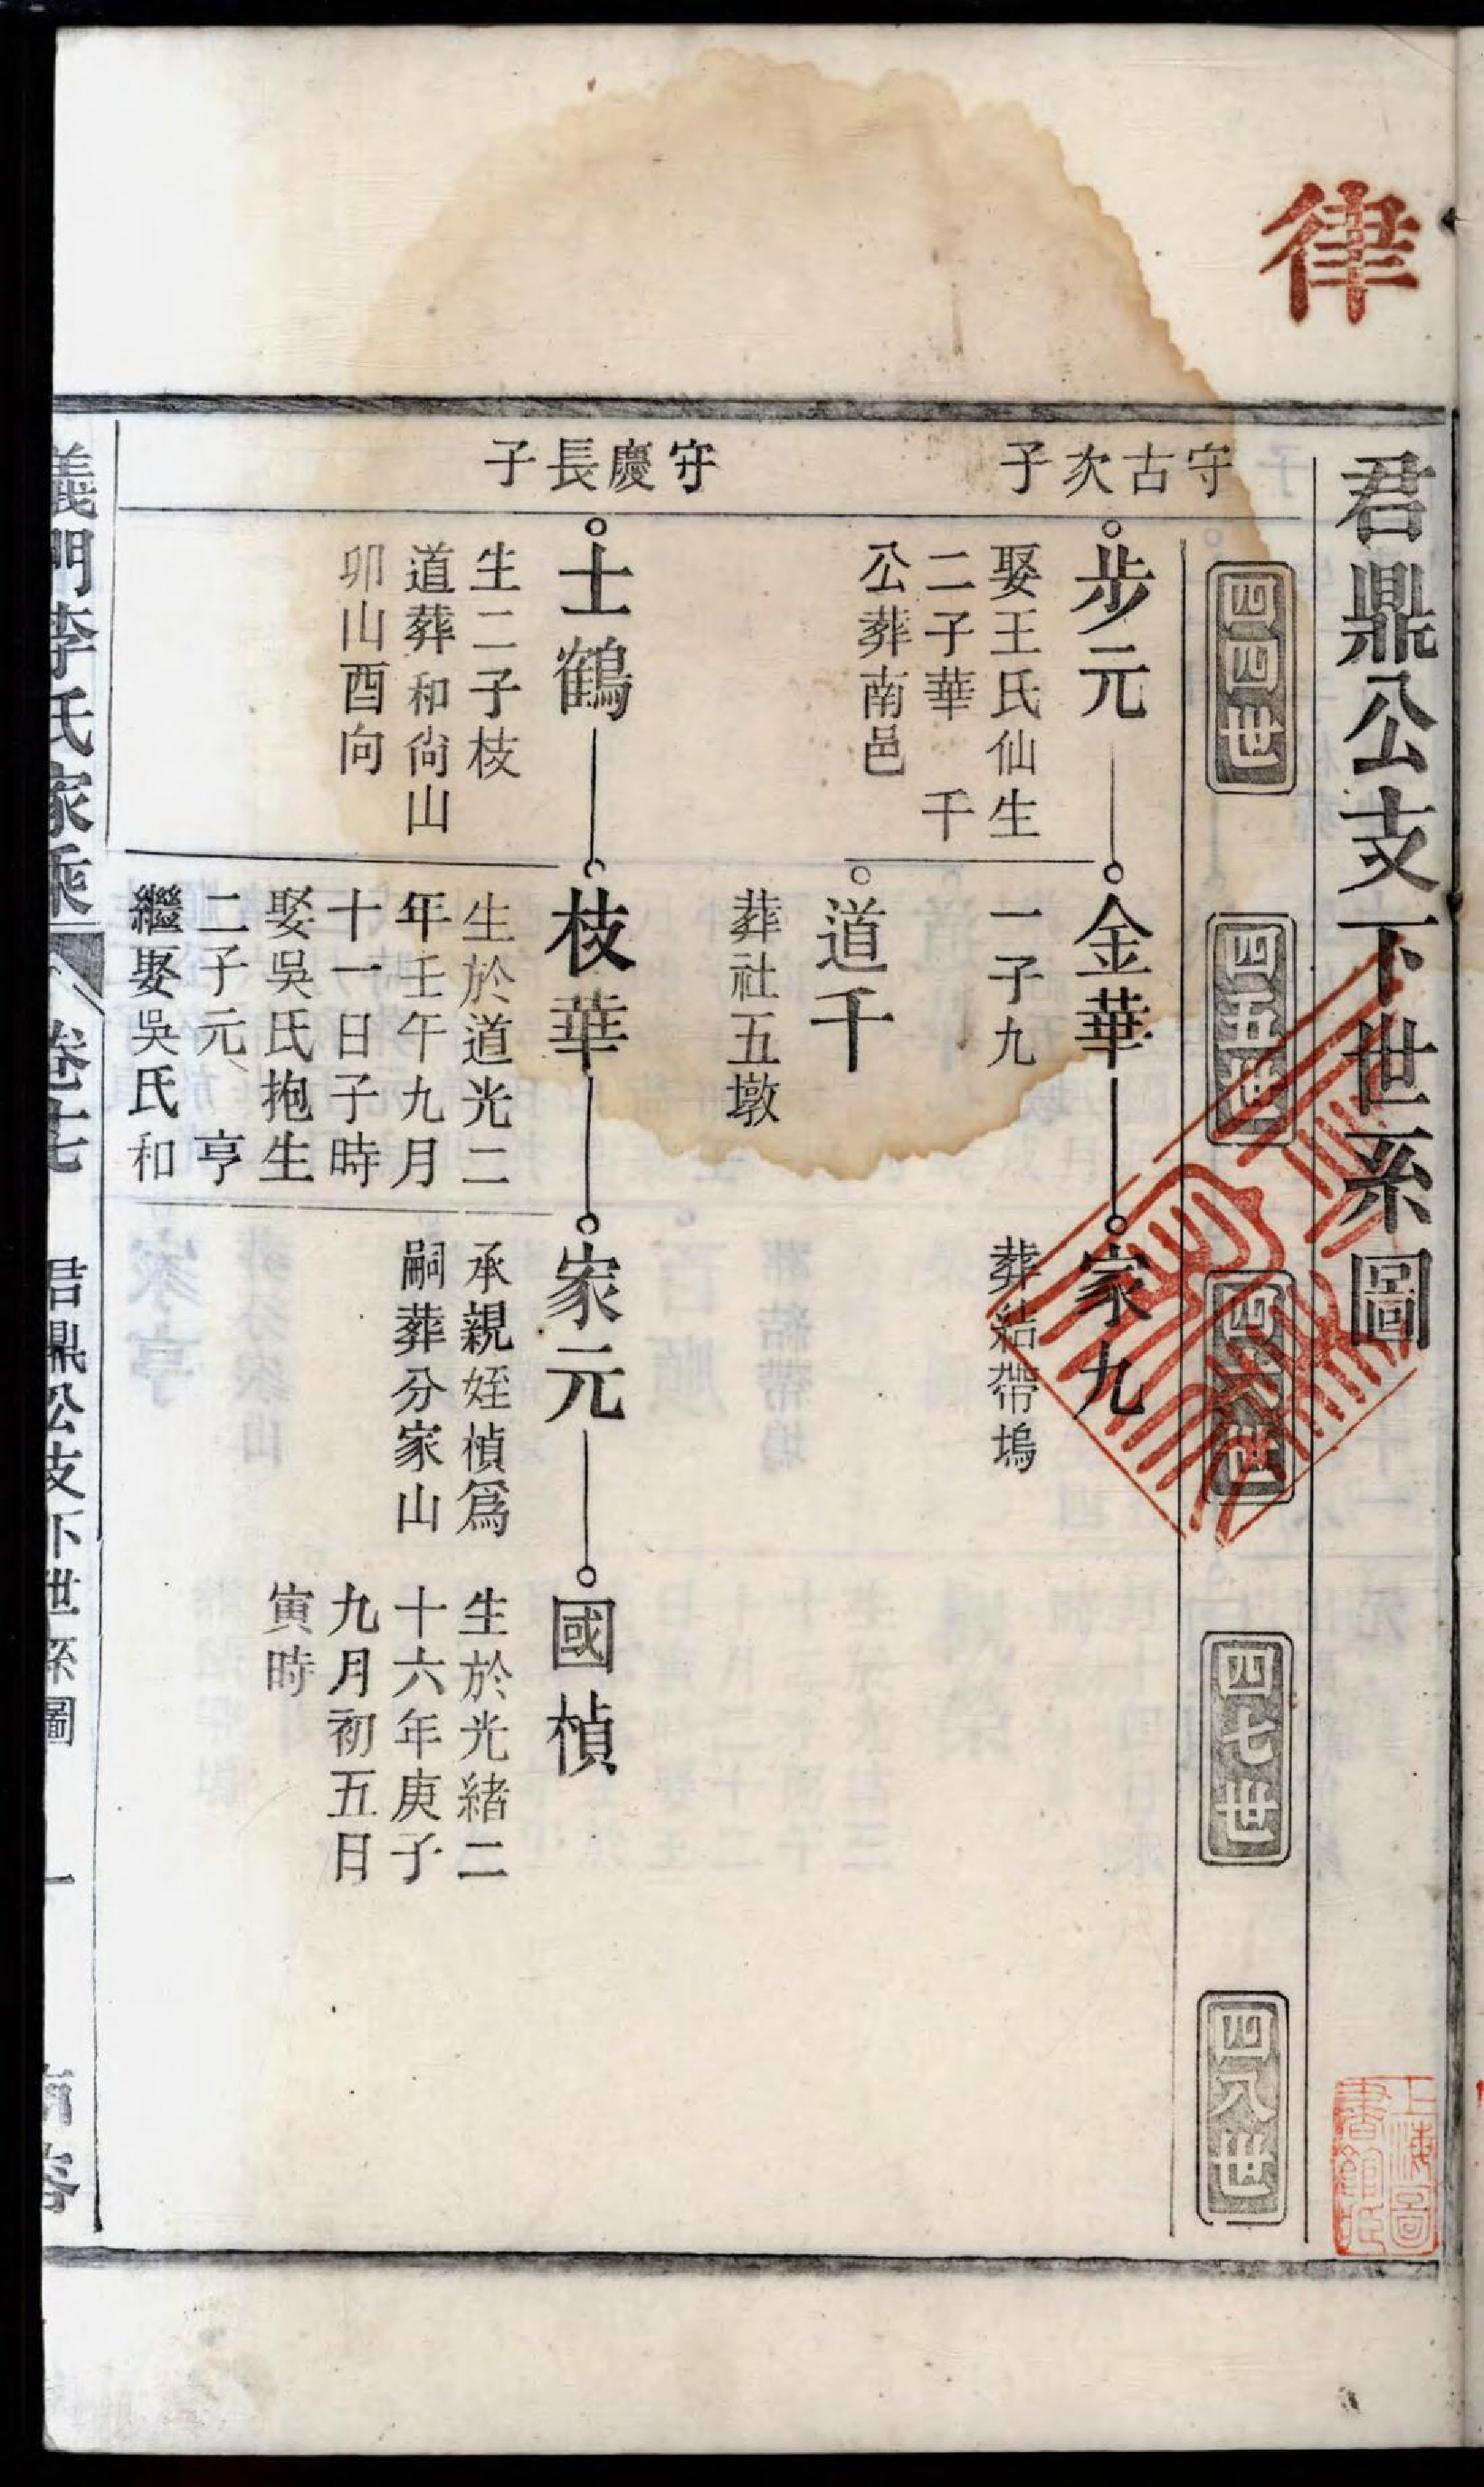 律
君鼎公支下世系圖
四四世
四五世
四六世
四七世
四八世
守古次子
步元
娶王氏仙生
二子華 千
公葬南邑
金華
一子九
家九
葬結帶塢
道千
葬社五墩
守慶長子
士鶴
生二子枝
道葬和尙山
卯山酉向
枝華
生於道光二
年壬午九月
十一日子時
娶吳氏抱生
二子元、亨
繼娶吳氏和
家元
承親姪楨爲
嗣葬分家山
國楨
生於光緖二
十六年庚子
九月初五日
寅時
義門李氏家乘
卷七
君鼎公支下世系圖
一
上海圖
書館藏